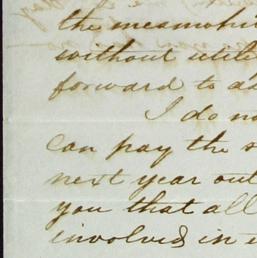 the meanwhil
without util
forward to ad
I do no
can pay the s
next year out
you that all
involved in e